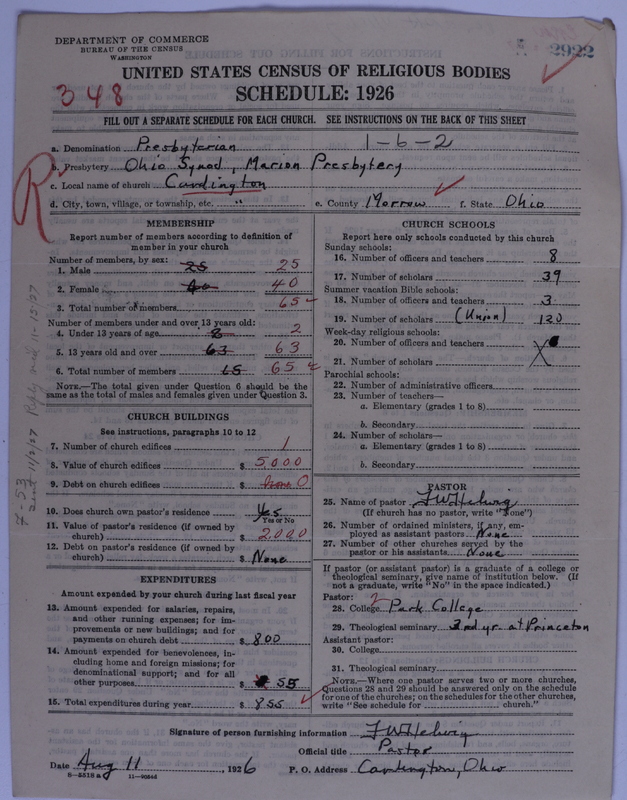 DEPARTMENT OF COMMERCE
BUREAU OF THE CENSUS
WASHINGTON
2922
UNITED STATES CENSUS OF RELIGIOUS BODIES
348
SCHEDULE: 1926
FILL OUT A SEPARATE SCHEDULE FOR EACH CHURCH. SEE INSTRUCTIONS ON THE BACK OF THIS SHEET
1-6-2
a. Denomination Presbyterian
b. Presbytery Ohio Synod, Marion Presbytery
c. Local name of church Cardington
d. City, town, village, or township, etc. " e. County Morrow f. State Ohio
R
MEMBERSHIP
Report number of members according to definition of member in your church
Number of members, by sex:
1. Male 25 25
2. Female 40 40
3. Total number of members 65
Number of members under and over 13 years old:
4. Under 13 years of age 2
5. 13 years old and over 63 63
6. Total number of members 65 65
NOTE.—The total given under Question 6 should be the same as the total of males and females given under Question 3.
CHURCH BUILDINGS
See instructions, paragraphs 10 to 12
7. Number of church edifices 1
8. Value of church edifices $ 5,000
9. Debt on church edifices $ 0
10. Does church own pastor's residence Yes
Yes or No
11. Value of pastor's residence (if owned by church) $ 2,000
12. Debt on pastor's residence (if owned by church) $ None
EXPENDITURES
Amount expended by your church during last fiscal year
13. Amount expended for salaries, repairs, and other running expenses; for improvements or new buildings; and for payments on church debt $ 800
14. Amount expended for benevolences, including home and foreign missions; for denominational support; and for all other purposes $ 55
15. Total expenditures during year $ 855
CHURCH SCHOOLS
Report here only schools conducted by this church
Sunday schools:
16. Number of officers and teachers 8
17. Number of scholars 39
Summer vacation Bible schools:
18. Number of officers and teachers 3
19. Number of scholars (Union) 120
Week-day religious schools:
20. Number of officers and teachers
21. Number of scholars
Parochial schools:
22. Number of administrative officers
23. Number of teachers—
a. Elementary (grades 1 to 8)
b. Secondary
24. Number of scholars—
a. Elementary (grades 1 to 8)
b. Secondary
PASTOR
25. Name of pastor F W Helwig
(If church has no pastor, write "None")
26. Number of ordained ministers, if any, employed as assistant pastors None
27. Number of other churches served by the pastor or his assistants None
If pastor (or assistant pastor) is a graduate of a college or theological seminary, give name of institution below. (If not a graduate, write "No" in the space indicated.)
Pastor:
28. College Park College
29. Theological seminary 2nd yr. at Princeton
Assistant pastor:
30. College
31. Theological seminary
NOTE.—Where one pastor serves two or more churches, Questions 28 and 29 should be answered only on the schedule for one of the churches; on the schedules for the other churches, write "See schedule for church."
Signature of person furnishing information F W Helwig
Official title Pastor
Date Aug 11, 1926 P. O. Address Cardington, Ohio
8—5518 a 11—9054d
7-53
sent 11/2/27 Reply 11-15/27